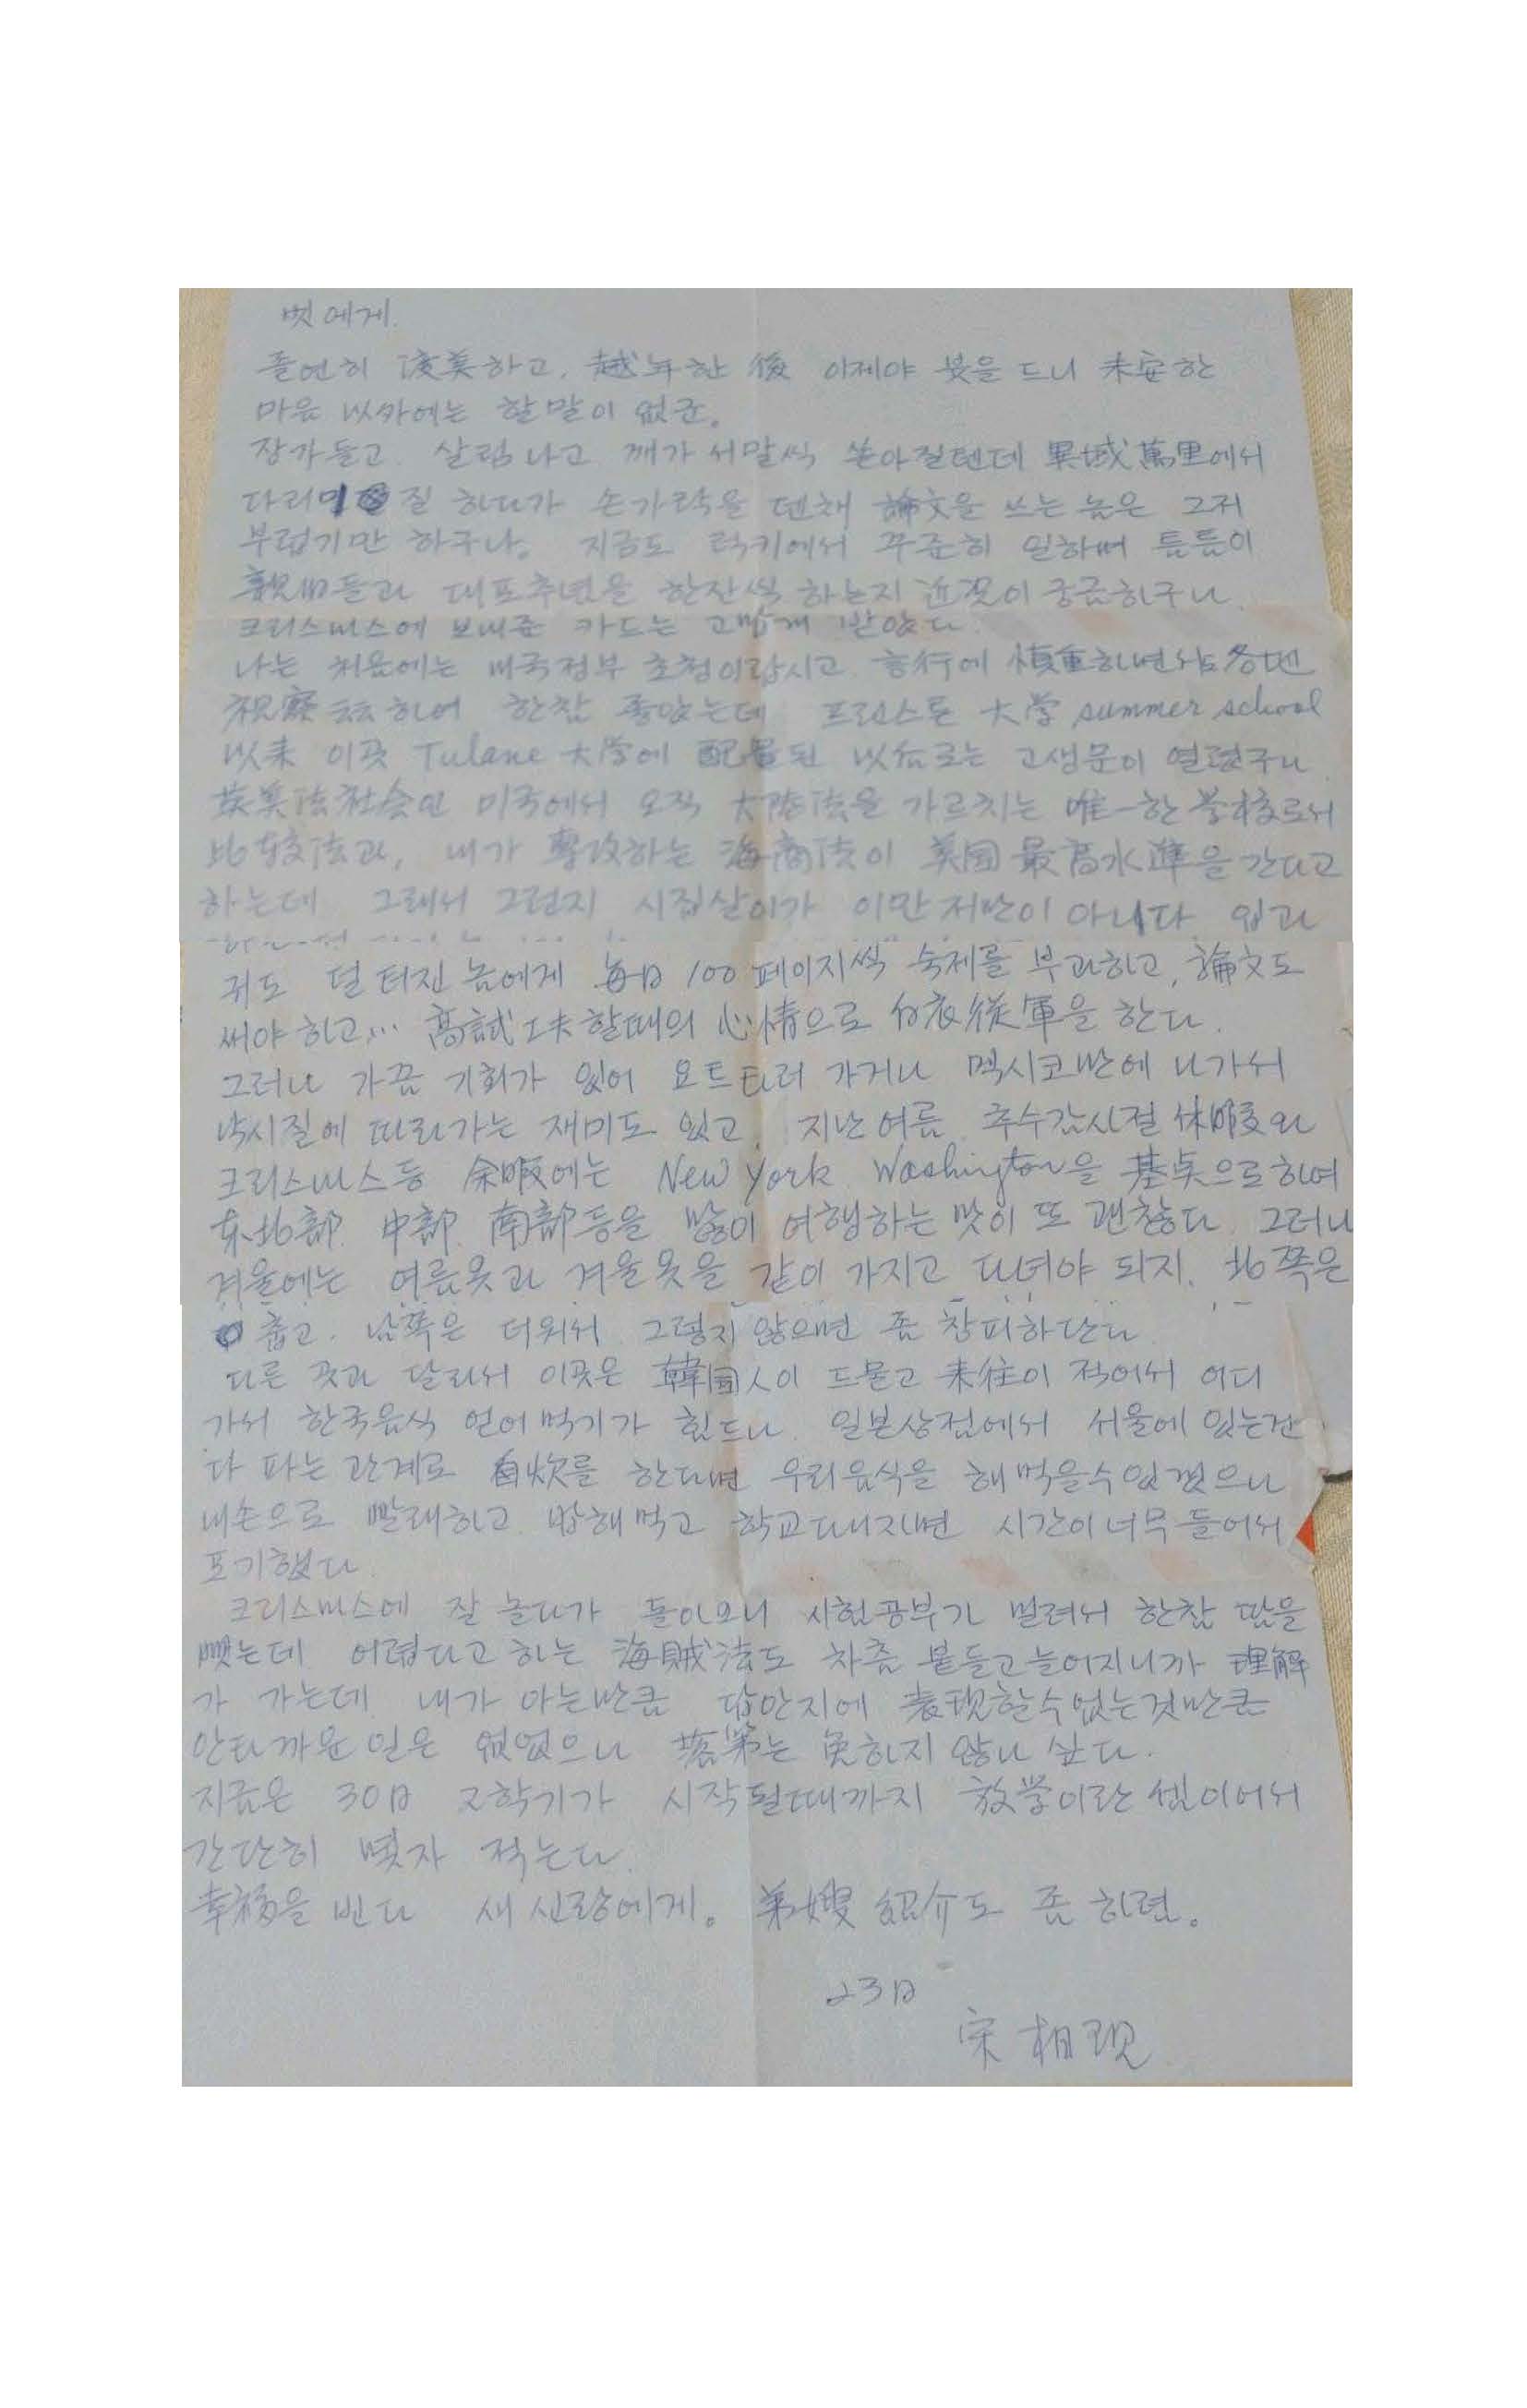 벗에게.
졸연히 渡美하고, 越年한 後 이제야 붓을 드니 未安한
마음 以外에는 할 말이 없군.
장가들고 살림나고 깨가 서말씩 쏟아질텐데 異域萬里에서
다리미질 하다가 손가락을 덴채 論文을 쓰는 놈은 그저
부럽기만 하구나. 지금도 럭키에서 꾸준히 일하며 틈틈이
親旧들과 대포추념을 한잔씩 하는지 近况이 궁금하구나.
크리스마스에 보내준 카드는 고맙게 받았다.
나는 처음에는 미국정부 초청이랍시고 言行에 慎重하면서 各地
視察云云하여 한참 좋았는데 프린스톤 大学 summer school
以来 이곳 Tulane 大学에 配置된 以后로는 고생문이 열렸구나
英美法社会인 미국에서 오직 大陸法을 가르치는 唯一한 学校로서
比較法과, 내가 專攻하는 海商法이 美国 最高水準을 간다고
하는데 그래서 그런지 시집살이가 이만 저만이 아니다. 입과
귀도 덜 터진 놈에게 每日 100페이지씩 숙제를 부과하고, 論文도
써야 하고... 高試工夫할때의 心情으로 白衣從軍을 한다.
그러나 가끔 기회가 있어 요트타러 가거나 멕시코만에 나가서
낚시질에 따라가는 재미도 있고, 지난 여름 추수감사절 休暇와
크리스마스등 余暇에는 New York Washington을 基点으로 하여
東北部 中部 南部등을 많이 여행하는 맛이 또 괜찮다. 그러나
겨울에는 여름옷과 겨울옷을 같이 가지고 다녀야 되지. 北쪽은
춥고 남쪽은 더워서 그렇지 않으면 좀 창피하단다
다른 곳과 달라서 이곳은 韓国人이 드물고 来往이 적어서 어디
가서 한국음식 얻어먹기가 힘드나 일본상점에서 서울에 있는건
다 파는 관계로 自炊를 한다면 우리음식을 해먹을수 있겠으나
내손으로 빨래하고 밥해먹고 학교다니자면 시간이 너무 들어서
포기했다.
크리스마스에 잘 놀다가 돌아오니 시험공부가 밀려서 한참 땀을
뺐는데 어렵다고 하는 海賊法도 차츰 붙들고 늘어지니까 理解
가 가는데 내가 아는만큼 답안지에 表現할수 없는것만큼
안타까운 일은 없었으나 落第는 免하지 않나 싶다.
지금은 30日 고학기가 시작될때까지 放学이란 셈이어서
간단히 몇자 적는다.
幸福을 빈다 새 신랑에게. 弟嫂 紹介도 좀 하렴.
23日
宋相現